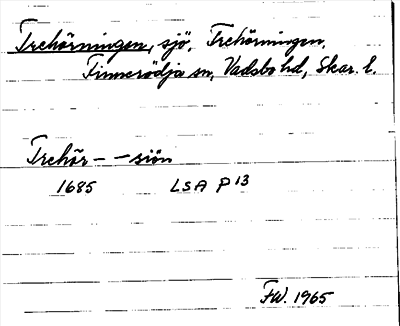 Trehörningen, sjö, Trehörningen,
Finnerödja sn, Vadsbo hd, Skar. l.
Trehör – – siön
1685 LSA P 13
FW. 1965